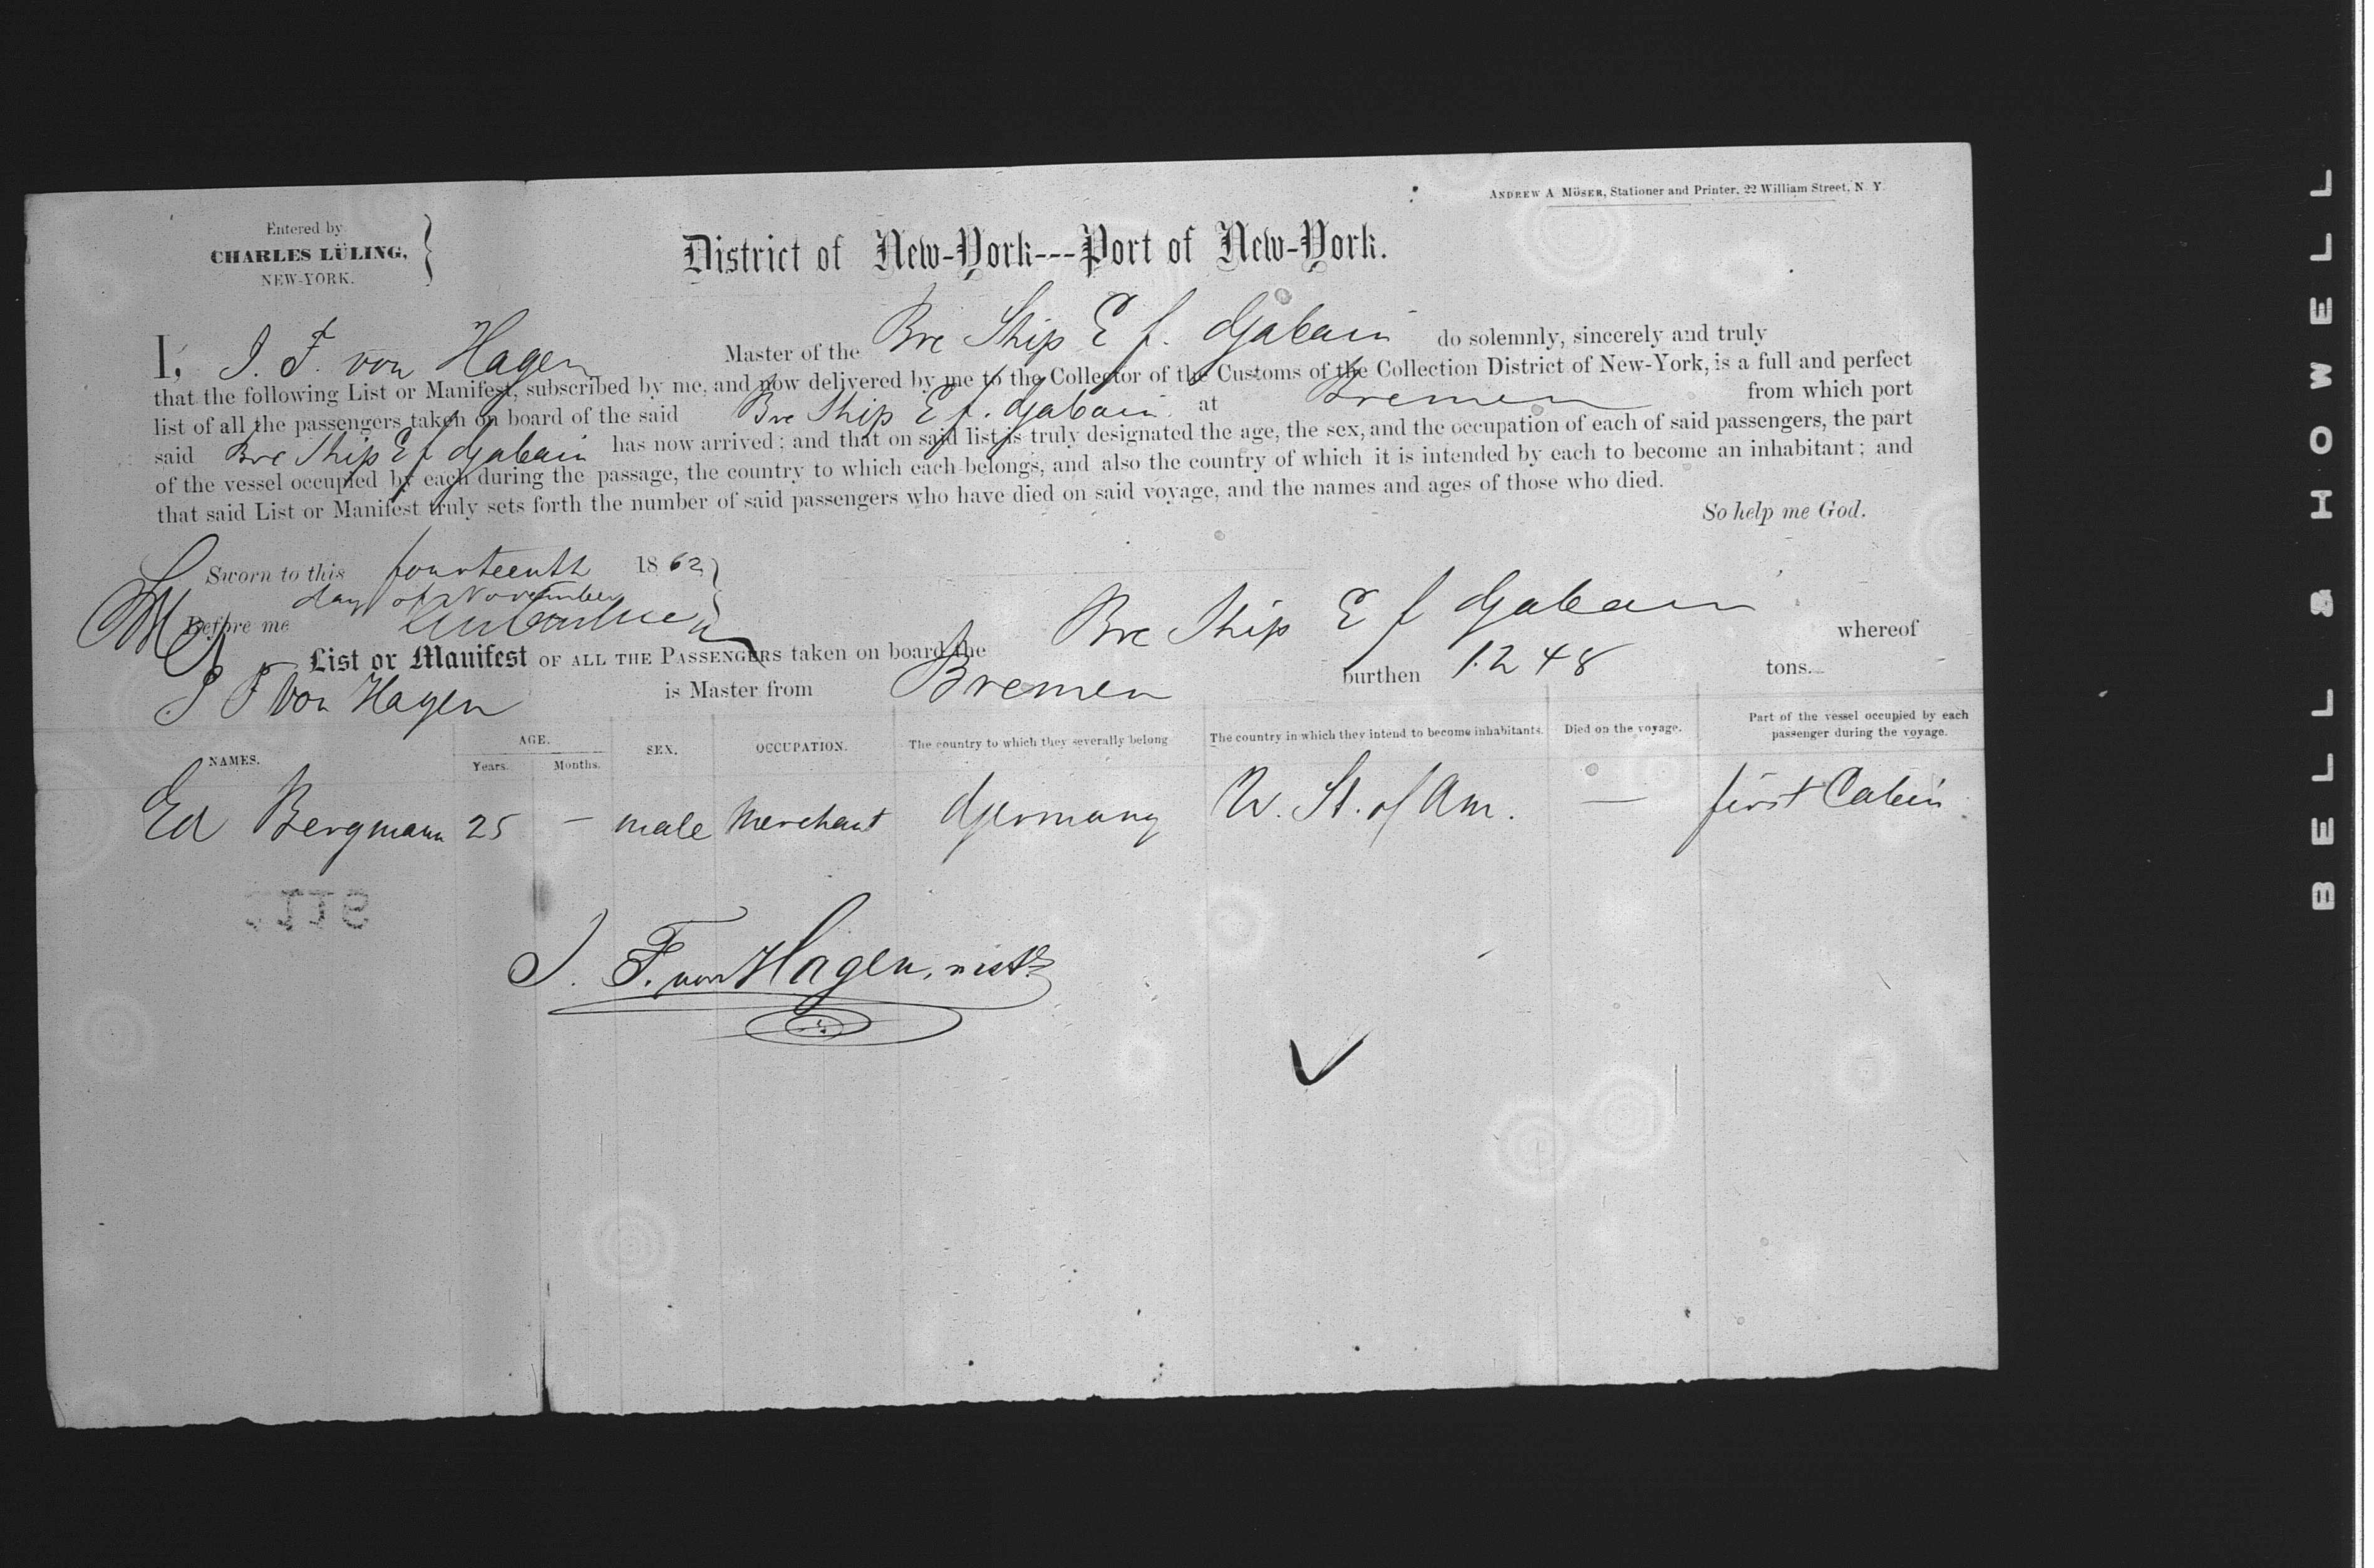 ANDREW A MÖSER, Stationer and Printer, 22 William Street, N. Y.
Entered by
CHARLES LÜLING,
NEW-YORK.
District of New-York---Port of New-York.
I, J. F. von Hagen Master of the Bre Ship E f. Gabain do solemnly, sincerely and truly
that the following List or Manifest, subscribed by me, and now delivered by me to the Collector of the Customs of the Collection District of New-York, is a full and perfect
list of all the passengers taken on board of the said Bre Ship E f. Gabain. at Bremen from which port
said Bre Ship E f Gabain has now arrived; and that on said list is truly designated the age, the sex, and the occupation of each of said passengers, the part
of the vessel occupied by each during the passage, the country to which each belongs, and also the country of which it is intended by each to become an inhabitant; and
that said List or Manifest truly sets forth the number of said passengers who have died on said voyage, and the names and ages of those who died.
So help me God.
Sworn to this fourteenth 1862
day of November
Before me
List or Manifest OF ALL THE PASSENGERS taken on board the Bre Ship E f Gabain whereof
J F Von Hagen is Master from Bremen burthen 1248 tons.
NAMES. AGE. Years. Months. SEX. OCCUPATION. The country to which they severally belong The country in which they intend to become inhabitants. Died on the voyage. Part of the vessel occupied by each passenger during the voyage.
Ed Bergmann 25 — male Merchant Germany U. St. of Am. — first Cabin
J. F. von Hagen, mstr
BELL & HOWELL